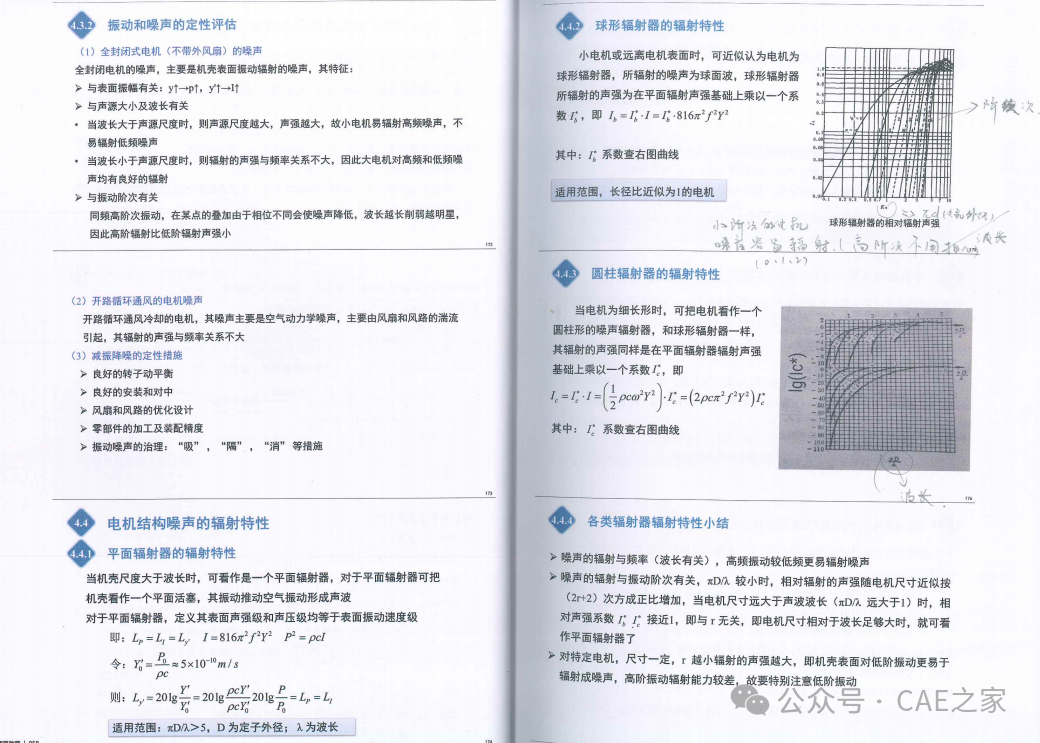 4.3.2 振动和噪声的定性评估
（1）全封闭式电机（不带外风扇）的噪声
全封闭电机的噪声，主要是机壳表面振动辐射的噪声，其特征：
➢ 与表面振幅有关：y↑→p↑，y'↑→I↑
➢ 与声源大小及波长有关
• 当波长大于声源尺度时，则声源尺度越大，声强越大，故小电机易辐射高频噪声，不
易辐射低频噪声
• 当波长小于声源尺度时，则辐射的声强与频率关系不大，因此大电机对高频和低频噪
声均有良好的辐射
➢ 与振动阶次有关
同频高阶次振动，在某点的叠加由于相位不同会使噪声降低，波长越长削弱越明星，
因此高阶辐射比低阶辐射声强小
（2）开路循环通风的电机噪声
开路循环通风冷却的电机，其噪声主要是空气动力学噪声，主要由风扇和风路的湍流
引起，其辐射的声强与频率关系不大
（3）减振降噪的定性措施
➢ 良好的转子动平衡
➢ 良好的安装和对中
➢ 风扇和风路的优化设计
➢ 零部件的加工及装配精度
➢ 振动噪声的治理：“吸”，“隔”，“消”等措施
173
4.4 电机结构噪声的辐射特性
4.4.1 平面辐射器的辐射特性
当机壳尺度大于波长时，可看作是一个平面辐射器，对于平面辐射器可把
机壳看作一个平面活塞，其振动推动空气振动形成声波
对于平面辐射器，定义其表面声强级和声压级均等于表面振动速度级
即：L_P = L_I = L_y' I = 816π²f²Y² P² = ρcI
令：Y₀' = P₀/ρc ≈ 5×10⁻¹⁰ m/s
则：L_y' = 20lg Y'/Y₀' = 20lg ρcY'/ρcY₀' 20lg P/P₀ = L_P = L_I
适用范围：πD/λ＞5，D 为定子外径； λ 为波长
174
4.4.2 球形辐射器的辐射特性
小电机或远离电机表面时，可近似认为电机为
球形辐射器，所辐射的噪声为球面波，球形辐射器
所辐射的声强为在平面辐射声强基础上乘以一个系
数 I_b*，即 I_b = I_b*·I = I_b*·816π²f²Y²
其中：I_b* 系数查右图曲线
适用范围，长径比近似为1的电机
阶次
球形辐射器的相对辐射声强
波长
(0.1.2)
4.4.3 圆柱辐射器的辐射特性
当电机为细长形时，可把电机看作一个
圆柱形的噪声辐射器，和球形辐射器一样，
其辐射的声强同样是在平面辐射器辐射声强
基础上乘以一个系数 I_c*，即
I_c = I_c*·I = (1/2 ρcω²Y²)·I_c* = (2ρcπ²f²Y²)I_c*
其中： I_c* 系数查右图曲线
lg(Ic*)
波长
176
4.4.4 各类辐射器辐射特性小结
➢ 噪声的辐射与频率（波长有关），高频振动较低频更易辐射噪声
➢ 噪声的辐射与振动阶次有关，πD/λ 较小时，相对辐射的声强随电机尺寸近似按
（2r+2）次方成正比增加，当电机尺寸远大于声波波长（πD/λ 远大于1）时，相
对声强系数 I_b* I_c* 接近1，即与 r 无关，即电机尺寸相对于波长足够大时，就可看
作平面辐射器了
➢ 对特定电机，尺寸一定，r 越小辐射的声强越大，即机壳表面对低阶振动更易于
辐射成噪声，高阶振动辐射能力较差，故要特别注意低阶振动
公众号 · CAE之家